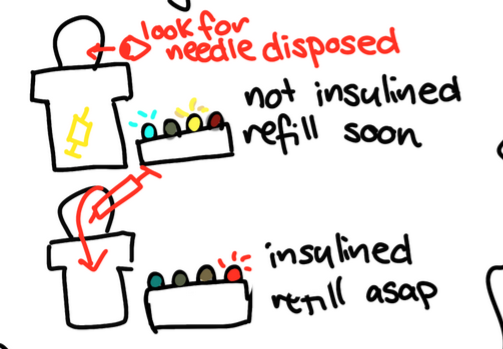 look for
needle disposed
not insulined
refill soon
insulined
refill asap